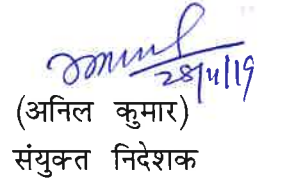 28/11/19
(अनिल कुमार)
संयुक्त निदेशक